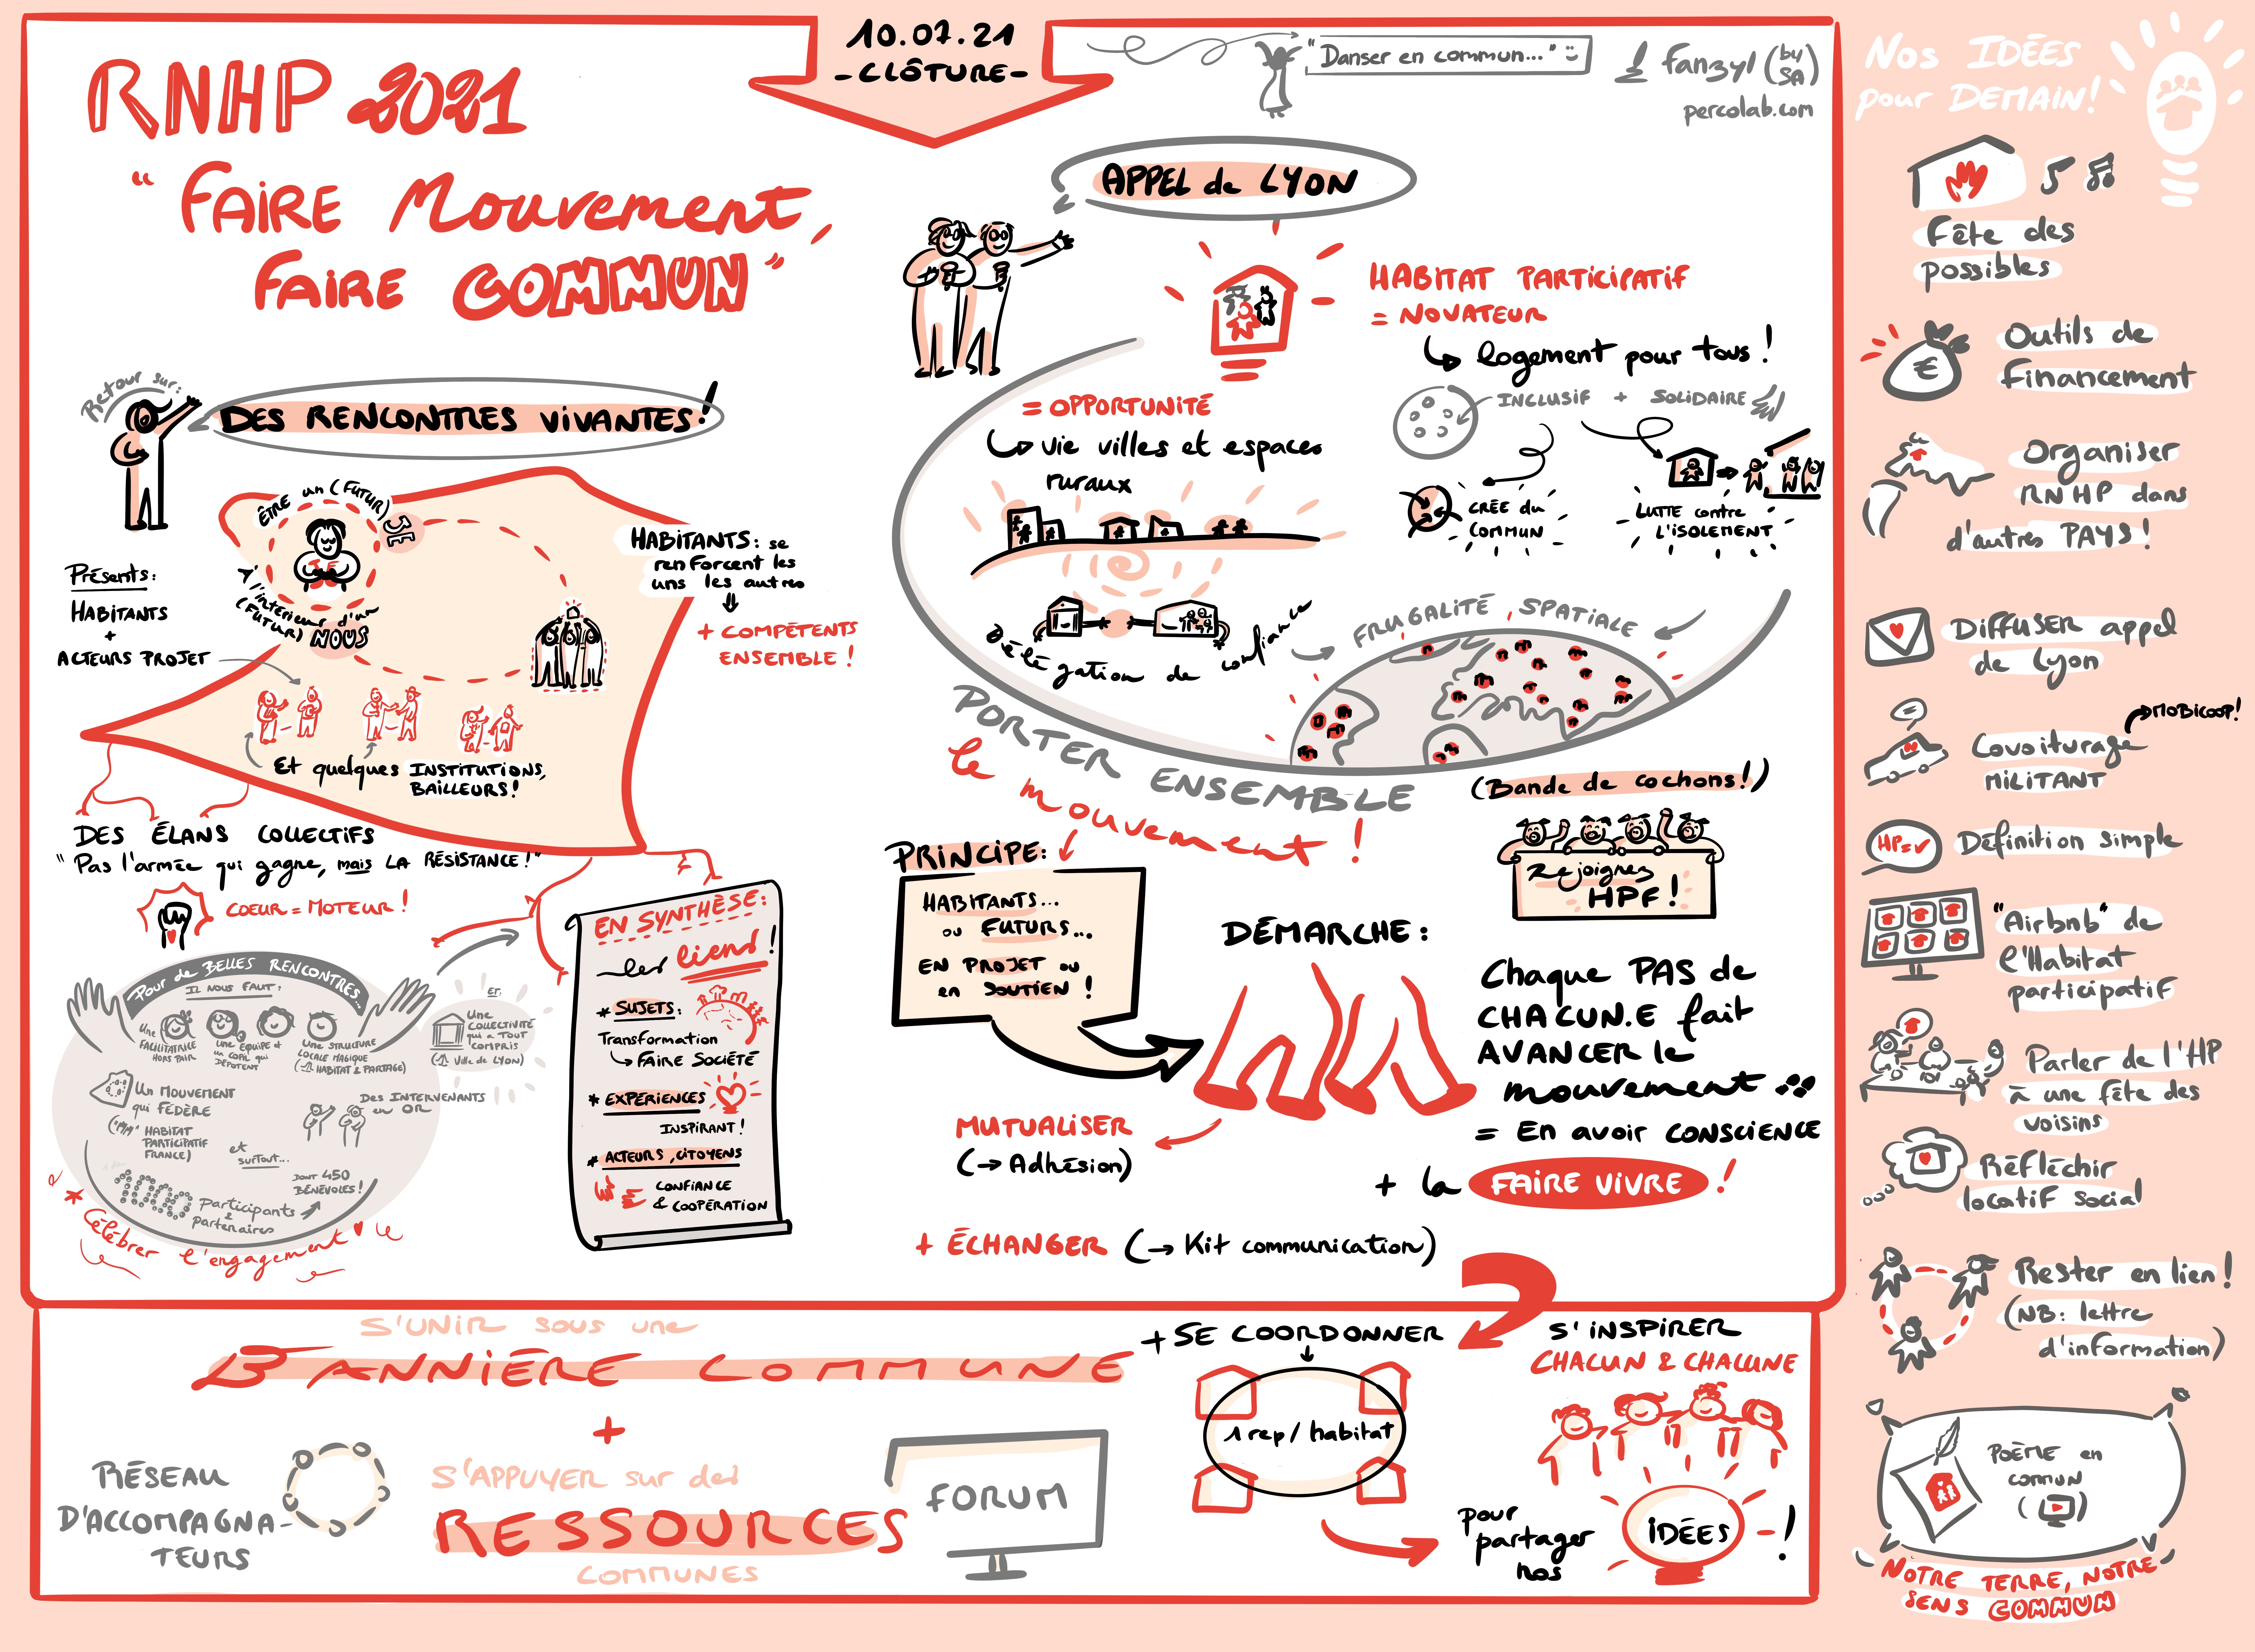 10.07.21
- CLÔTURE -
RNHP 2021
"FAIRE Mouvement,
FAIRE COMMUN"
"Danser en commun..."
fanzyl (by SA)
percolab.com
Retour sur:
DES RENCONTRES VIVANTES!
ÊTRE un (FUTUR) JE
À l'intérieur d'un
(FUTUR) NOUS
Présents:
HABITANTS
+
ACTEURS PROJET
HABITANTS: se
renforcent les
uns les autres
+ COMPÉTENTS
ENSEMBLE !
Et quelques INSTITUTIONS,
BAILLEURS!
DES ÉLANS COLLECTIFS
"Pas l'armée qui gagne, mais LA RÉSISTANCE!"
COEUR = MOTEUR !
Pour de BELLES RENCONTRES...
IL NOUS FAUT:
Une
FACILITATRICE
HORS PAIR
Une ÉQUIPE et
un COPIL qui
DÉPOTENT
Une STRUCTURE
LOCALE MAGIQUE
(HABITAT & PARTAGE)
ET:
Une
COLLECTIVITÉ
qui a TOUT
COMPRIS
(Ville de LYON)
Un MOUVEMENT
qui FÉDÈRE
(HABITAT
PARTICIPATIF
FRANCE)
Des INTERVENANTS
en OR
et
surtout...
DONT 450
BÉNÉVOLES!
Participants
&
partenaires
* Célébrer l'engagement
EN SYNTHÈSE:
les liens !
* SUJETS:
Transformation
FAIRE SOCIÉTÉ
* EXPÉRIENCES
INSPIRANT!
* ACTEURS, CITOYENS
CONFIANCE
& COOPÉRATION
APPEL de LYON
HABITAT PARTICIPATIF
= NOVATEUR
logement pour tous !
INCLUSIF + SOLIDAIRE
CRÉE du
COMMUN
LUTTE contre
L'ISOLEMENT
= OPPORTUNITÉ
vie villes et espaces
ruraux
Délégation de confiance
FRUGALITÉ SPATIALE
PORTER ENSEMBLE
le mouvement !
(Bande de cochons!)
Rejoignez
HPF !
PRINCIPE:
HABITANTS...
ou FUTURS...
EN PROJET ou
en SOUTIEN !
DÉMARCHE:
Chaque PAS de
CHACUN.E fait
AVANCER le
mouvement
= En avoir CONSCIENCE
+ la FAIRE VIVRE !
MUTUALISER
(→ Adhésion)
+ ÉCHANGER (→ Kit communication)
S'UNIR sous une
BANNIÈRE COMMUNE
+
S'APPUYER sur des
RESSOURCES
COMMUNES
RÉSEAU
D'ACCOMPAGNA-
TEURS
FORUM
+ SE COORDONNER
1 rep/habitat
S'INSPIRER
CHACUN & CHACUNE
pour
partager
nos
IDÉES !
Nos IDÉES
pour DEMAIN!
Fête des
possibles
€
Outils de
Financement
Organiser
RNHP dans
d'autres PAYS !
DIFFUSER appel
de Lyon
MOBICOOP!
Covoiturage
MILITANT
HP=✓
Définition simple
"Airbnb" de
l'Habitat
participatif
Parler de l'HP
à une fête des
voisins
Réfléchir
locatif social
Rester en lien !
(NB: lettre
d'information)
POÈME en
commun
NOTRE TERRE, NOTRE
SENS COMMUN